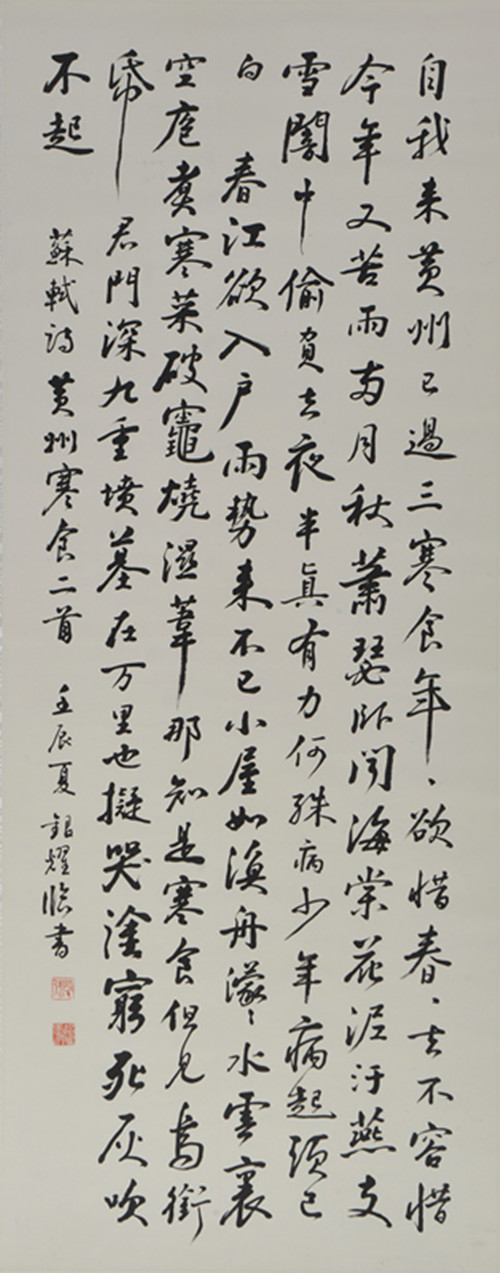 自我来黄州已過三寒食年〻欲惜春〻去不容惜
今年又苦雨兩月秋蕭瑟卧聞海棠花泥汙燕支
雪闇中偷負去夜半真有力何殊病少年病起頭已
白 春江欲入户雨勢来不已小屋如漁舟濛〻水雲裏
空庖煮寒菜破竈燒濕葦那知是寒食但見烏銜
帋 君門深九重墳墓在万里也擬哭塗窮死灰吹
不起 蘇軾詩黄州寒食二首 壬辰夏 銀耀臨書